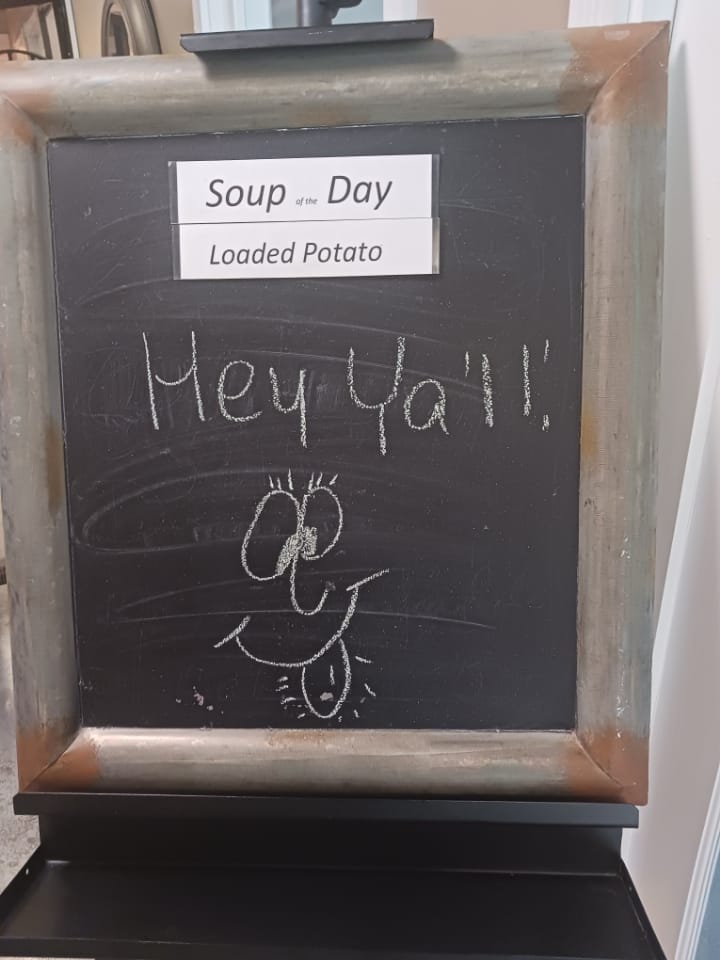 Soup of the Day
Loaded Potato
Hey Ya'll!